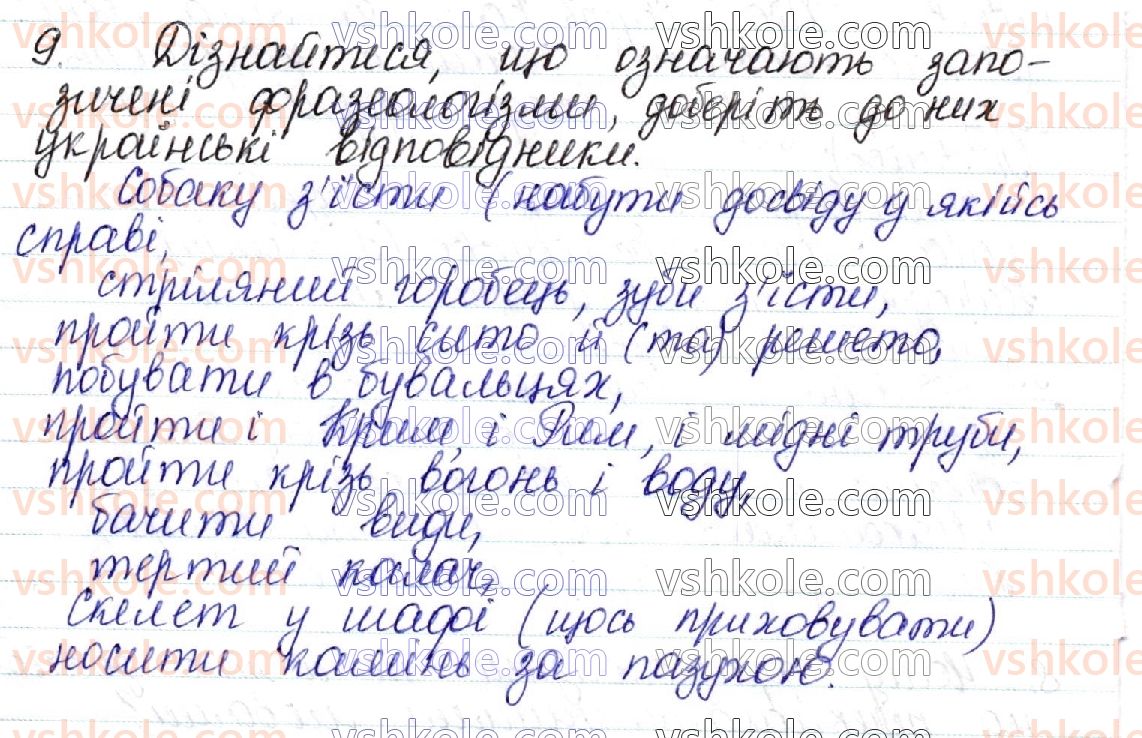 9. Дізнайтеся, що означають запо-
зичені фразеологізми, доберіть до них
українські відповідники.
Собаку з'їсти (набути досвіду у якійсь
справі,
стріляний горобець, зуби з'їсти,
пройти крізь сито й (та) решето,
побувати в бувальцях,
пройти і Крим, і Рим, і мідні труби,
пройти крізь вогонь і воду,
бачити види,
тертий калач,
Скелет у шафі (щось приховувати)
носити камінь за пазухою.
vshkole.com